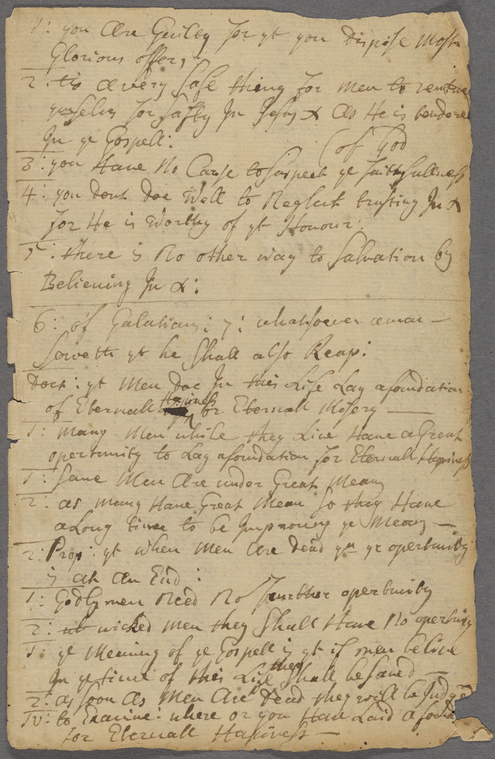 1: you Are Guilty for yt you dispise Most
Glorious offers
2: tis avery Safe thing for men to venture
ymselves for Safty In Jesus X As He is tendered
In ye Gospell: (of God
3: you Have No Cause to Suspect ye faithfullness
4: you dont doe Well to Neglect trusting In X
for He is Worthy of yt Honour:
5: there is No other way to Salvation by
Believing In X:
6: of Galatians: 7: whatsoever aman
Soweth yt he Shall also Reap:
Doct: yt Men Doe In this Life Lay afoundation
of Eternall Hapiness or Eternall Misery
1: Many Men while they Live Have a Great
opertunity to Lay afoundation for Eternall Hapiness
1: Some Men Are under Great Means
2: as many Have Great Means So they Have
a Long time to be Improving ye Means
2: Prop: yt when Men Are dead yn ye opertunity
is at An End:
1: Godly men Need No further opertunity
2: wicked men they Shall Have No opertunity
1: ye Meaning of ye Gospell is yt if men believe
In ye time of this Life they Shall be Saved
2: as soon As Men Are dead they will be Judgd
to Examine: where or you Have Laid a founda
for Eternall Hapiness